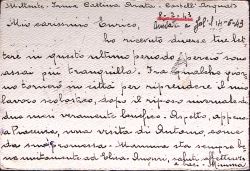 Mittente: Imma Cattina Arata - Castell'Arquato
Mio carissimo Enrico,
ho ricevuto diverse tue let
tere in questo ultimo periodo perciò sono
assai più tranquilla. Fra qualche giorno
tornerò in città per riprendere il mio
lavoro scolastico, dopo il riposo
due mesi veramente benefico. Aspetto, appena
a Piacenza, una visita di Antonio, secon
da sua promessa. Mamma sta sempre be
ne unitamente ad Elina. Auguri, saluti affettuosi
e baci. Mimma